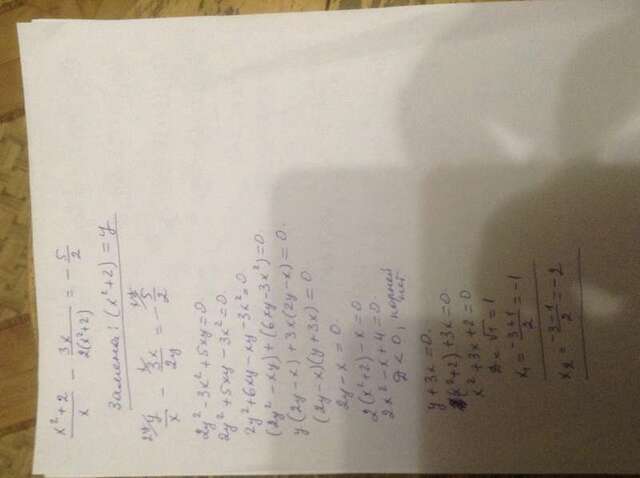 x²+2/x - 3x/2(x²+2) = -5/2
Замена: (x²+2) = y
y/x - 3x/2y = -5/2
2y² - 3x² + 5xy = 0
2y² + 5xy - 3x² = 0
2y² + 6xy - xy - 3x² = 0
(2y² - xy) + (6xy - 3x²) = 0
y(2y - x) + 3x(2y - x) = 0
(2y - x)(y + 3x) = 0
2y - x = 0
2(x²+2) - x = 0
2x² - x + 4 = 0
D < 0, корней нет
y + 3x = 0
(x²+2) + 3x = 0
x² + 3x + 2 = 0
D = √1 = 1
x₁ = -3+1/2 = -1
x₂ = -3-1/2 = -2